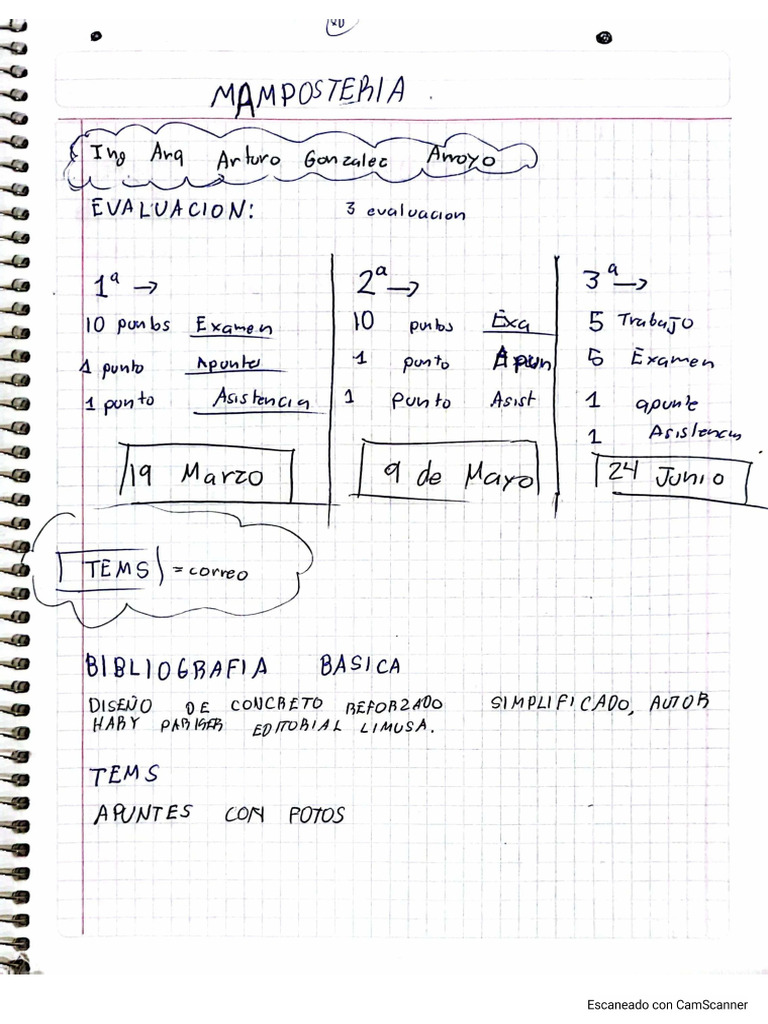 MAMPOSTERIA
Ing Arq Arturo Gonzalec Arroyo
EVALUACION: 3 evaluacion
1ª →
10 puntos Examen
1 punto Apuntes
1 punto Asistencia
19 Marzo
2ª →
10 puntos Exa
1 punto Apun
1 Punto Asist
9 de Mayo
3ª →
5 Trabajo
5 Examen
1 apunte
1 Asistencia
24 Junio
TEMS = correo
BIBLIOGRAFIA BASICA
DISEÑO DE CONCRETO REFORZADO SIMPLIFICADO, AUTOR
HARY PARKER EDITORIAL LIMUSA.
TEMS
APUNTES CON FOTOS
Escaneado con CamScanner